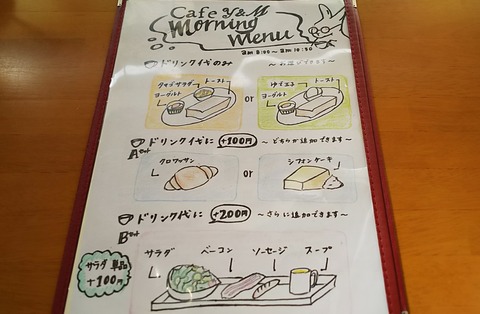 Cafe Y&M
Morning
Menu
am 8:00〜am 10:30
ドリンク代のみ 〜お選びできます〜
サラダ トースト
ヨーグルト
or
ゆで玉子 トースト
ヨーグルト
Aセット
ドリンク代に +100円 〜どちらか追加できます〜
クロワッサン
or
シフォンケーキ
Bセット
ドリンク代に +200円 〜さらに追加できます〜
サラダ ベーコン ソーセージ スープ
サラダ単品
+100円